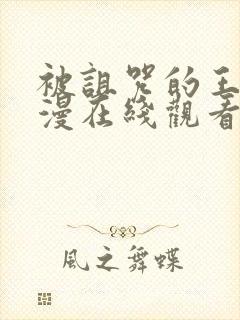 被詛咒的王
漫在綫觀看
風之舞蝶